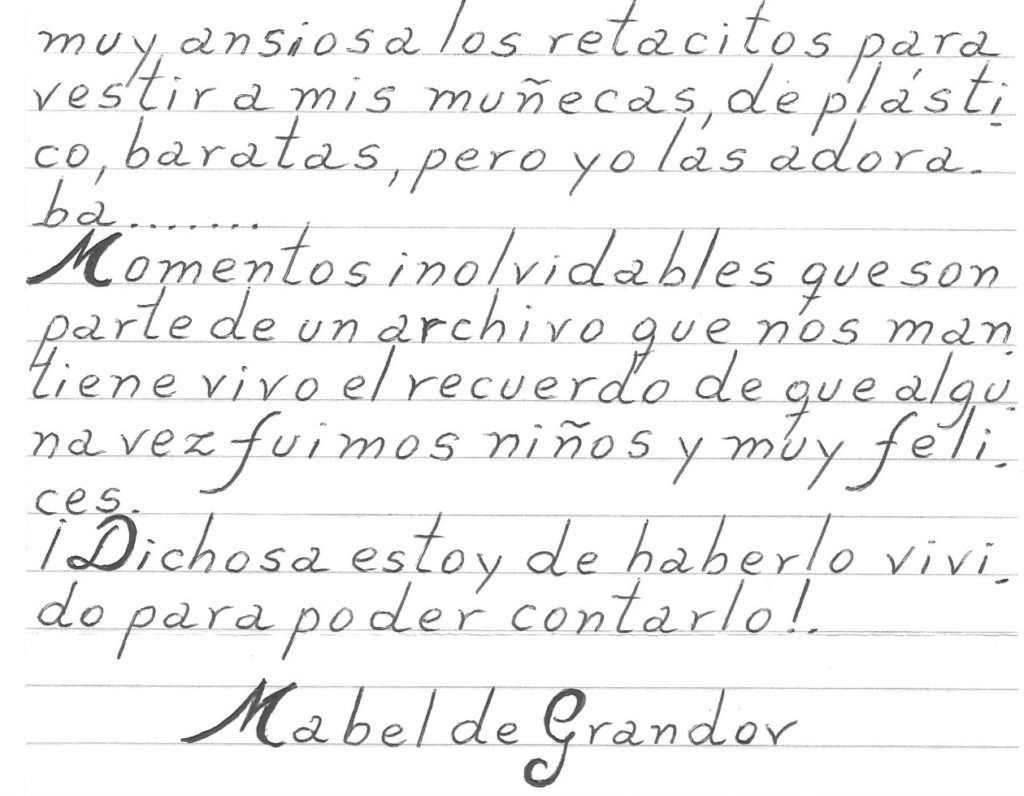 muy ansiosa los retacitos para
vestir a mis muñecas, de plásti_
co, baratas, pero yo las adora_
ba........
Momentos inolvidables que son
parte de un archivo que nos man_
tiene vivo el recuerdo de que algu_
na vez fuimos niños y muy feli_
ces.
¡Dichosa estoy de haberlo vivi_
do para poder contarlo!.
Mabel de Grandov